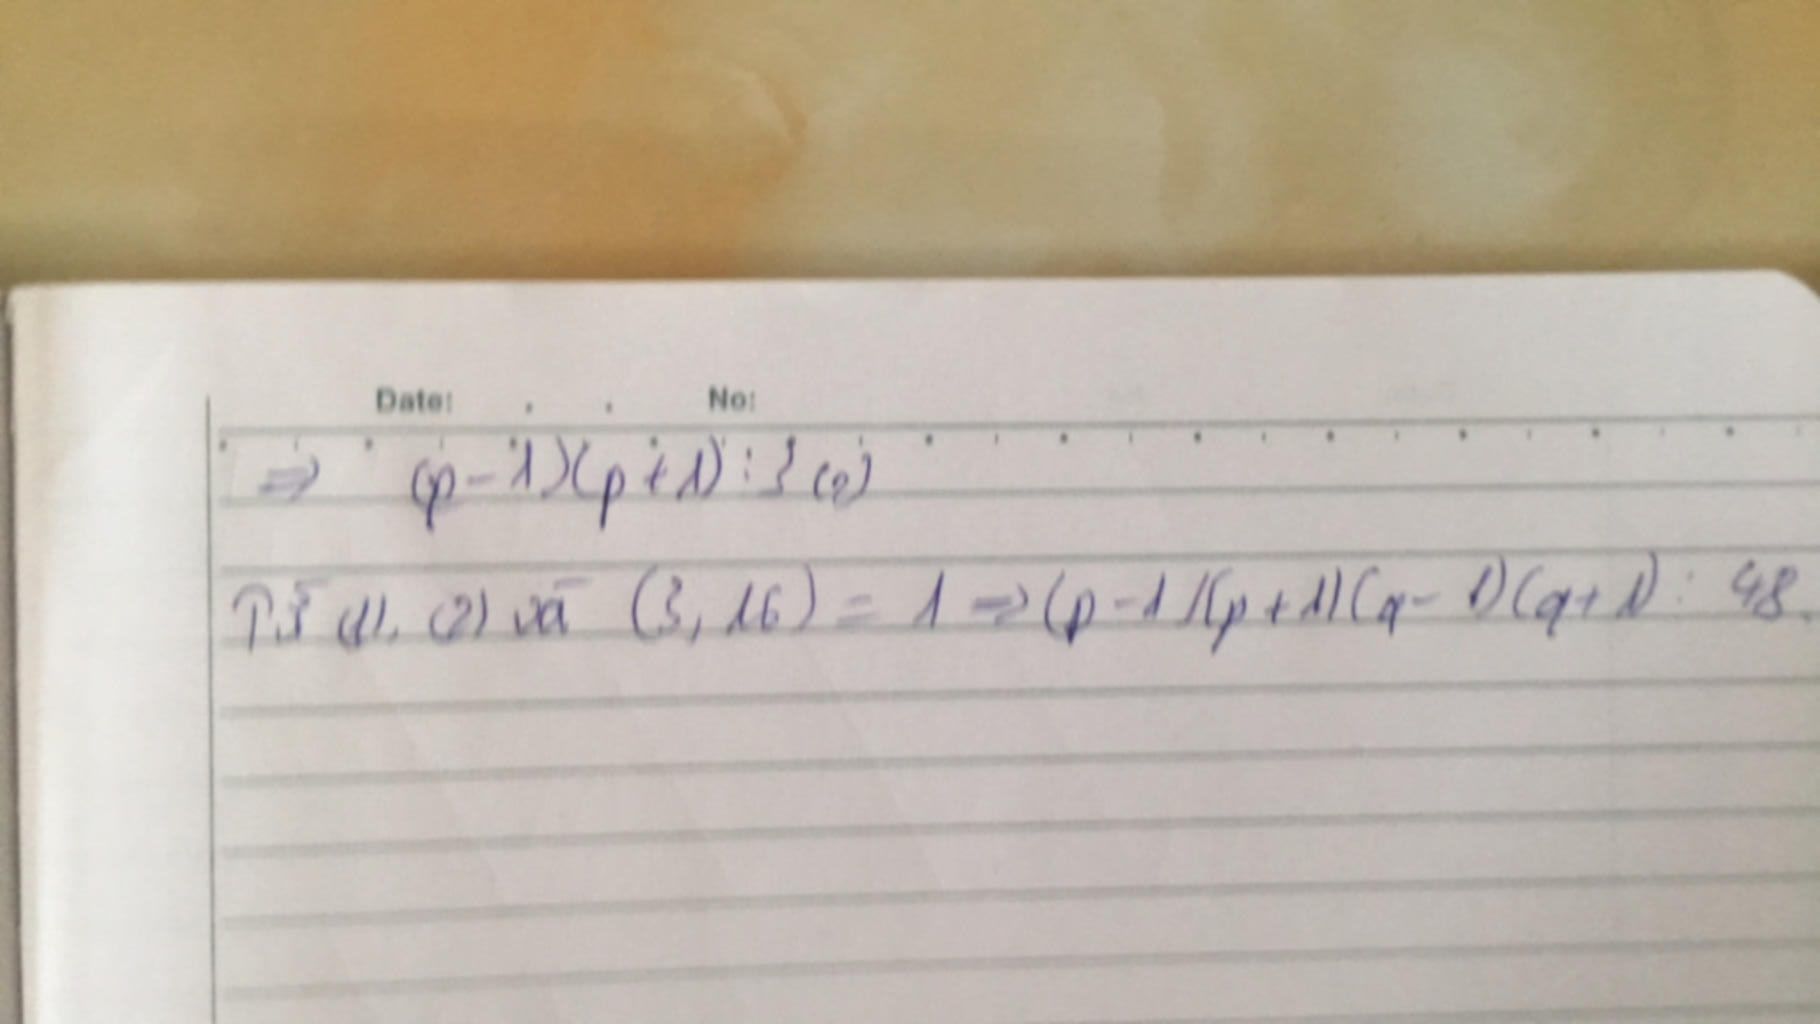 Date: . . No:
⇒ (p-1)(p+1) ⋮ 3 (2)
Từ (1), (2) và (3, 16) = 1 ⇒ (p-1)(p+1)(q-1)(q+1) ⋮ 48.